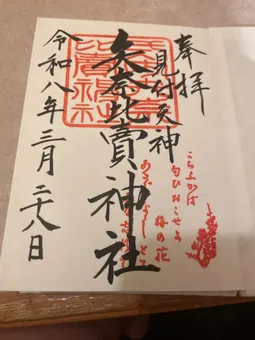 奉拝
見付天神
矢奈比賣神社
令和八年三月二十八日
こちふかば
匂ひおこせよ
梅の花
あるじなしとて